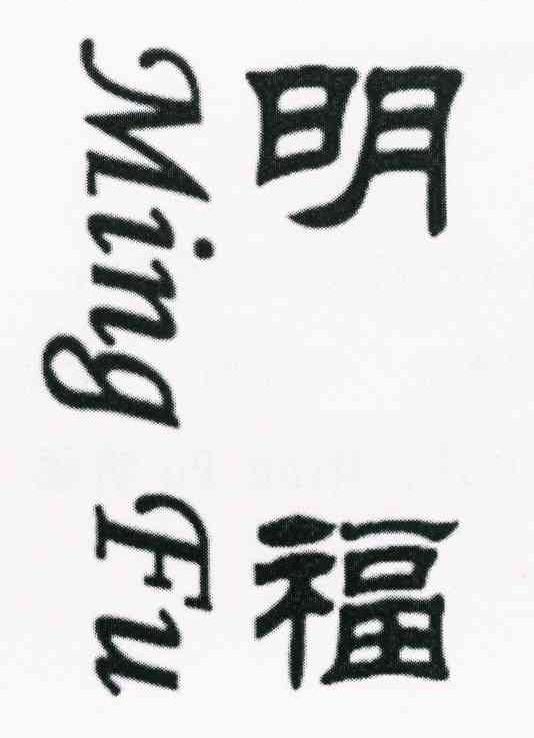 明福
Ming Fu